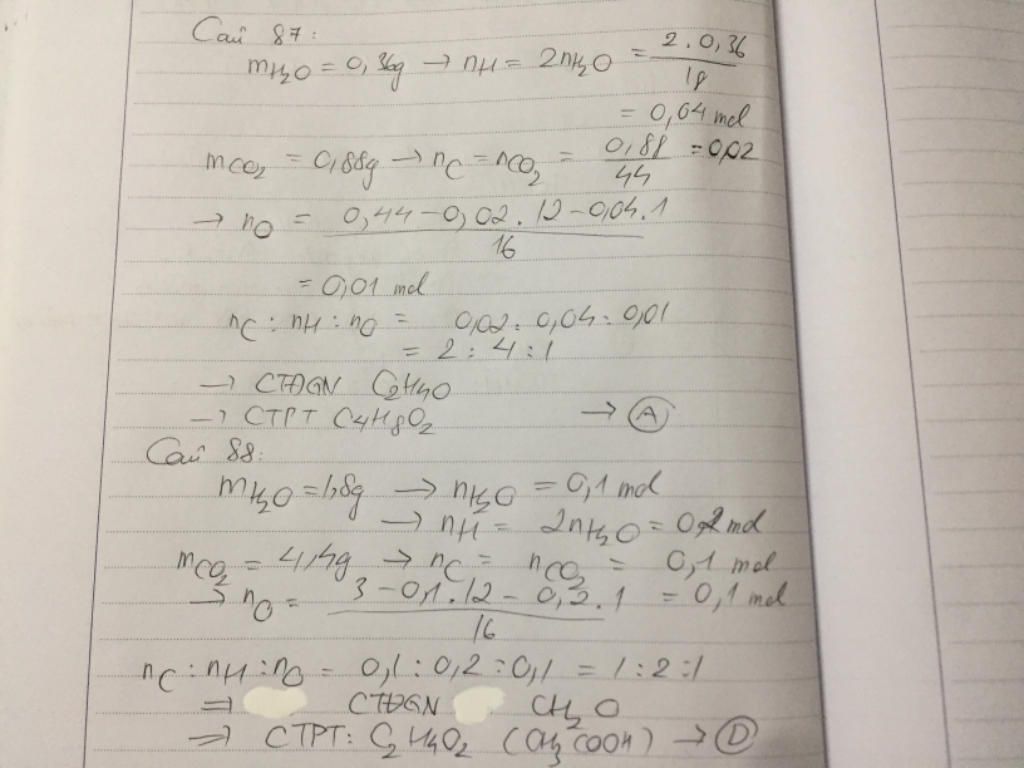 Câu 87:
mH₂O = 0,36g → nH = 2nH₂O = 2.0,36/18
= 0,04 mol
mCO₂ = 0,88g → nC = nCO₂ = 0,88/44 = 0,02
→ nO = (0,44 - 0,02.12 - 0,04.1)/16
= 0,01 mol
nC : nH : nO = 0,02 : 0,04 : 0,01
= 2 : 4 : 1
→ CTĐGN C₂H₄O
→ CTPT C₄H₈O₂ → A
Câu 88:
mH₂O = 1,8g → nH₂O = 0,1 mol
→ nH = 2nH₂O = 0,2 mol
mCO₂ = 4,4g → nC = nCO₂ = 0,1 mol
→ nO = (3 - 0,1.12 - 0,2.1)/16 = 0,1 mol
nC : nH : nO = 0,1 : 0,2 : 0,1 = 1 : 2 : 1
⇒ CTĐGN CH₂O
⇒ CTPT: C₂H₄O₂ (CH₃COOH) → D